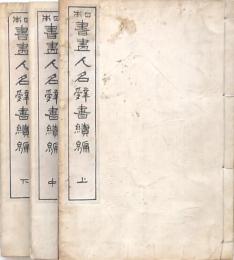 和書畫人名辭書續編 上
和書畫人名辭書續編 中
和書畫人名辭書續編 下